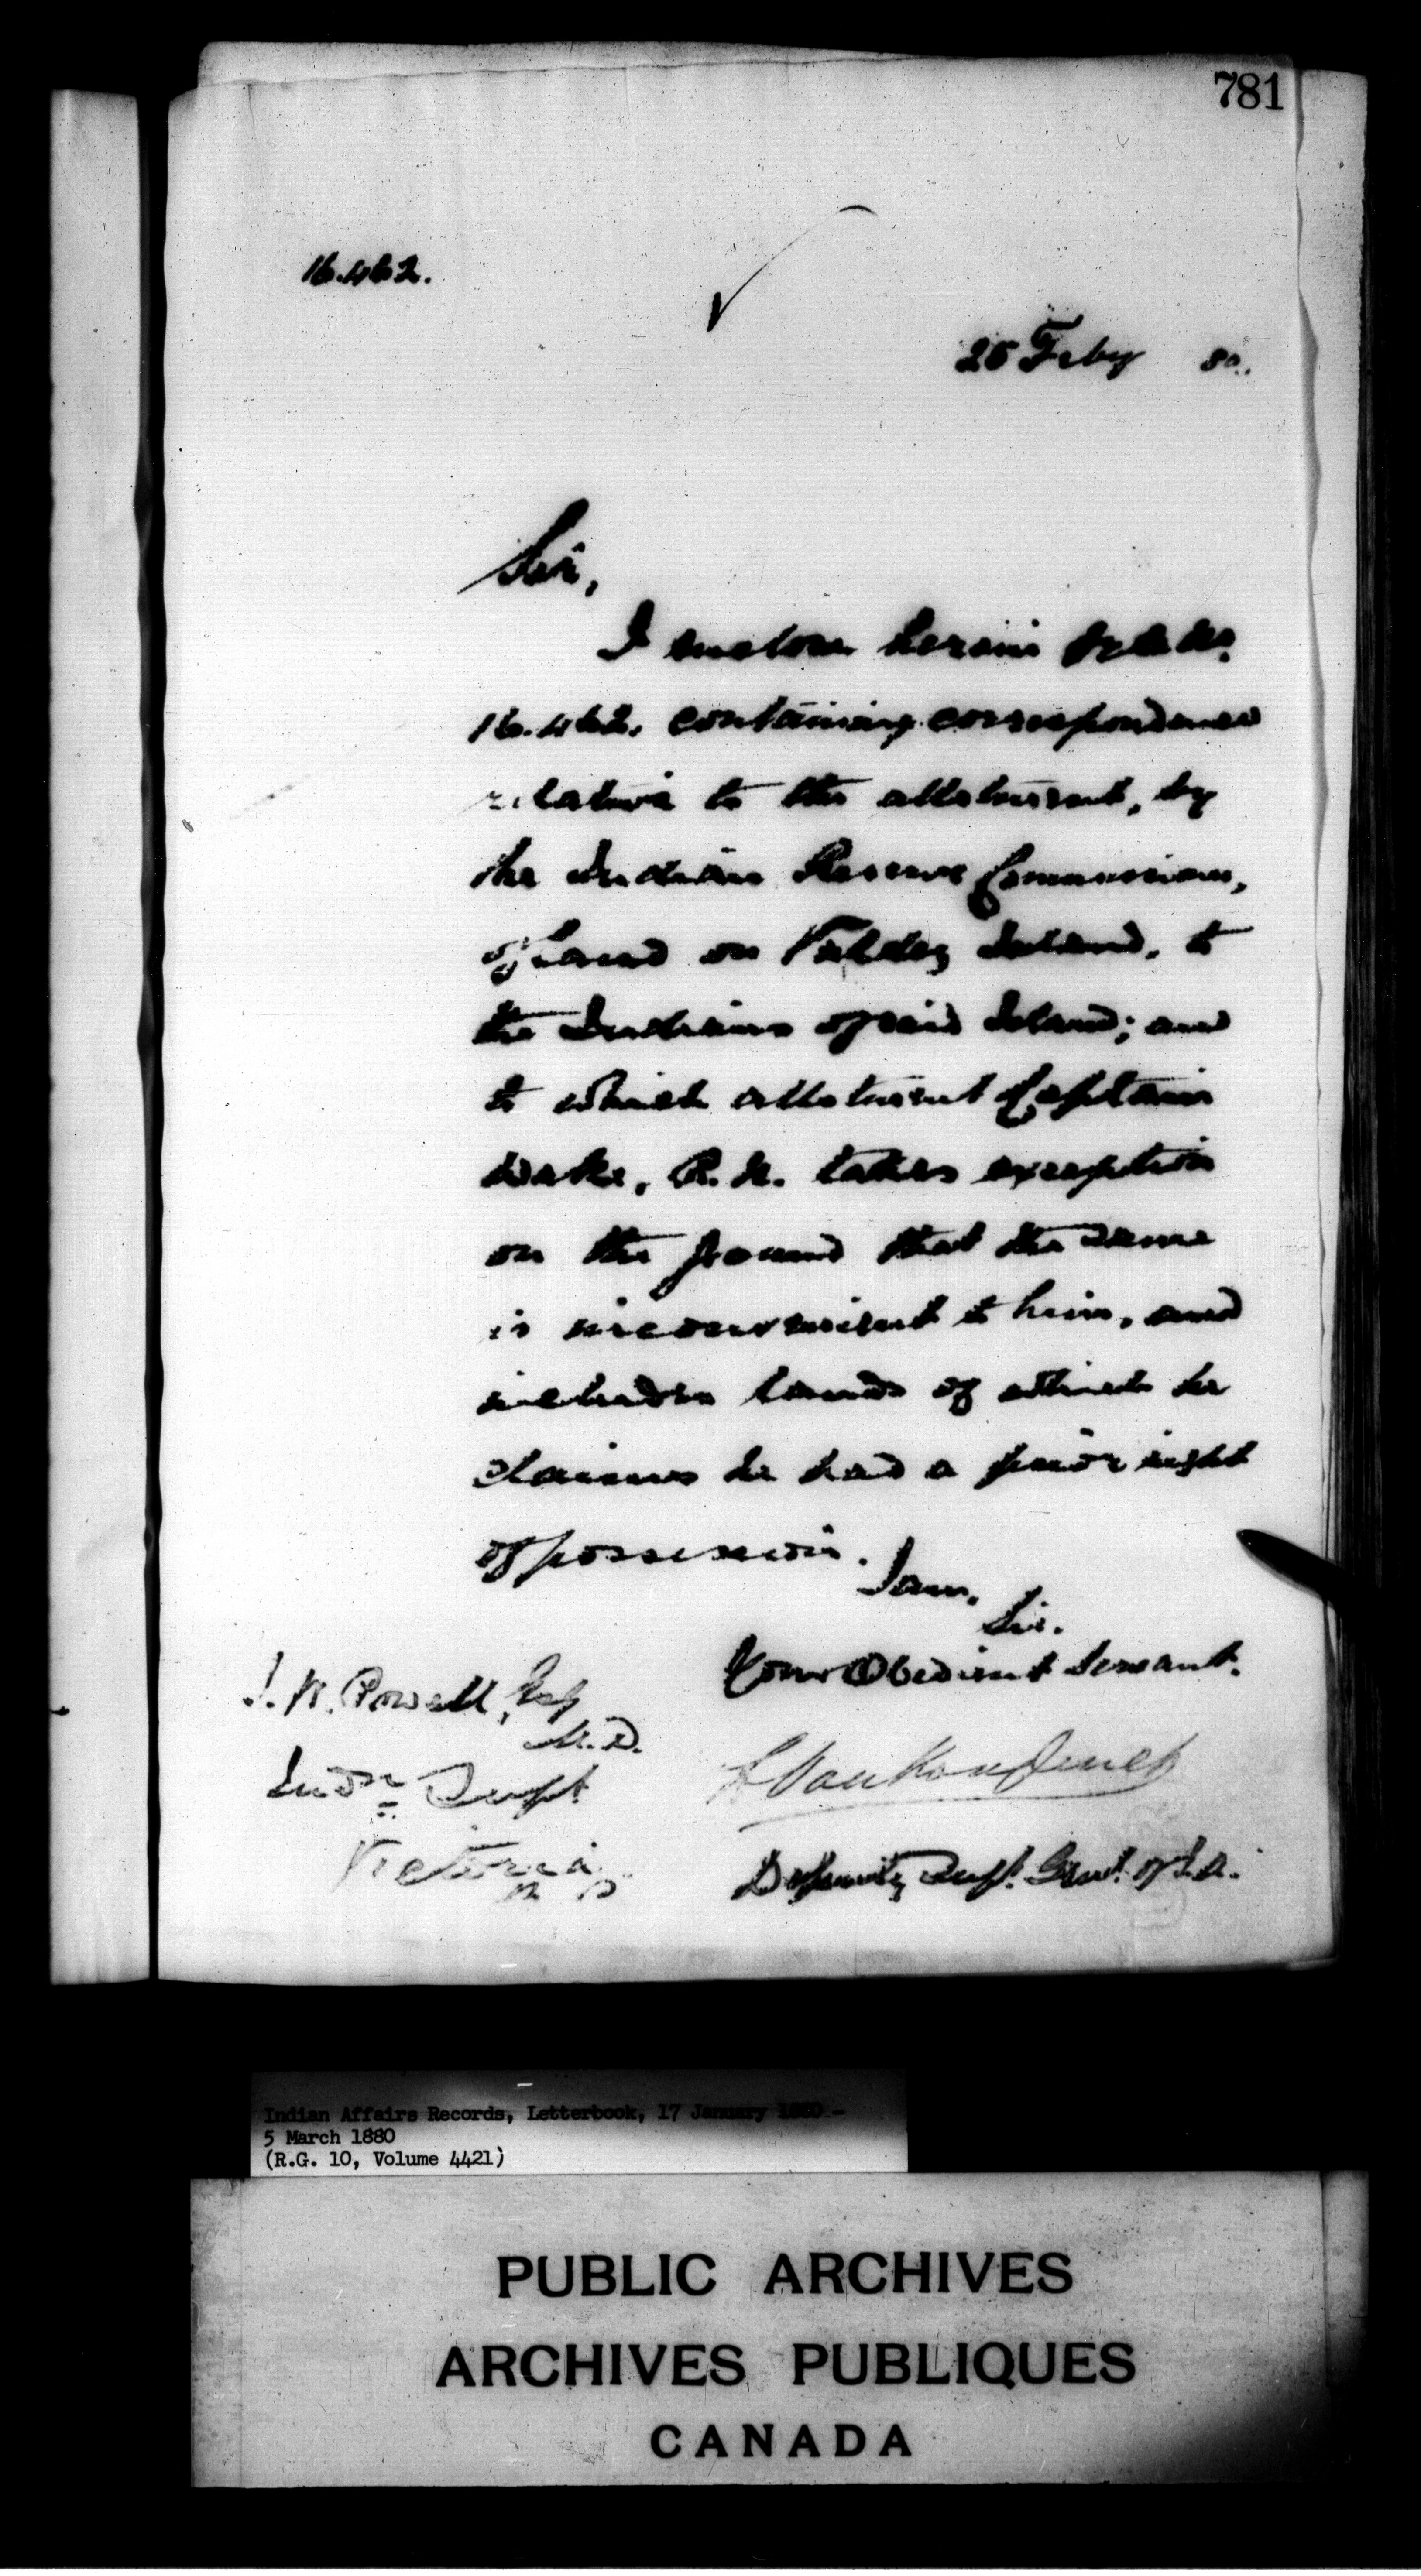 781
16.462.
25 Feby 80.
Sir,
I enclose herein file No.
16.462. containing correspondence
relative to the allotment, by
the Indian Reserve Commission,
of land on Valdez Island, to
the Indians of said Island; and
to which allotment Captain
Wake, R.N. takes exception
on the ground that the same
is inconvenient to him, and
includes lands of which he
claims he had a prior right
of possession.
I am,
Sir.
Your Obedient Servant.
I. W. Powell, Esq
M.D.
Indn Supt
Victoria
B C
L VanKoughnet
Deputy Supt. Genl. of I.A.
Indian Affairs Records, Letterbook, 17 January 1880 -
5 March 1880
(R.G. 10, Volume 4421)
PUBLIC ARCHIVES
ARCHIVES PUBLIQUES
CANADA